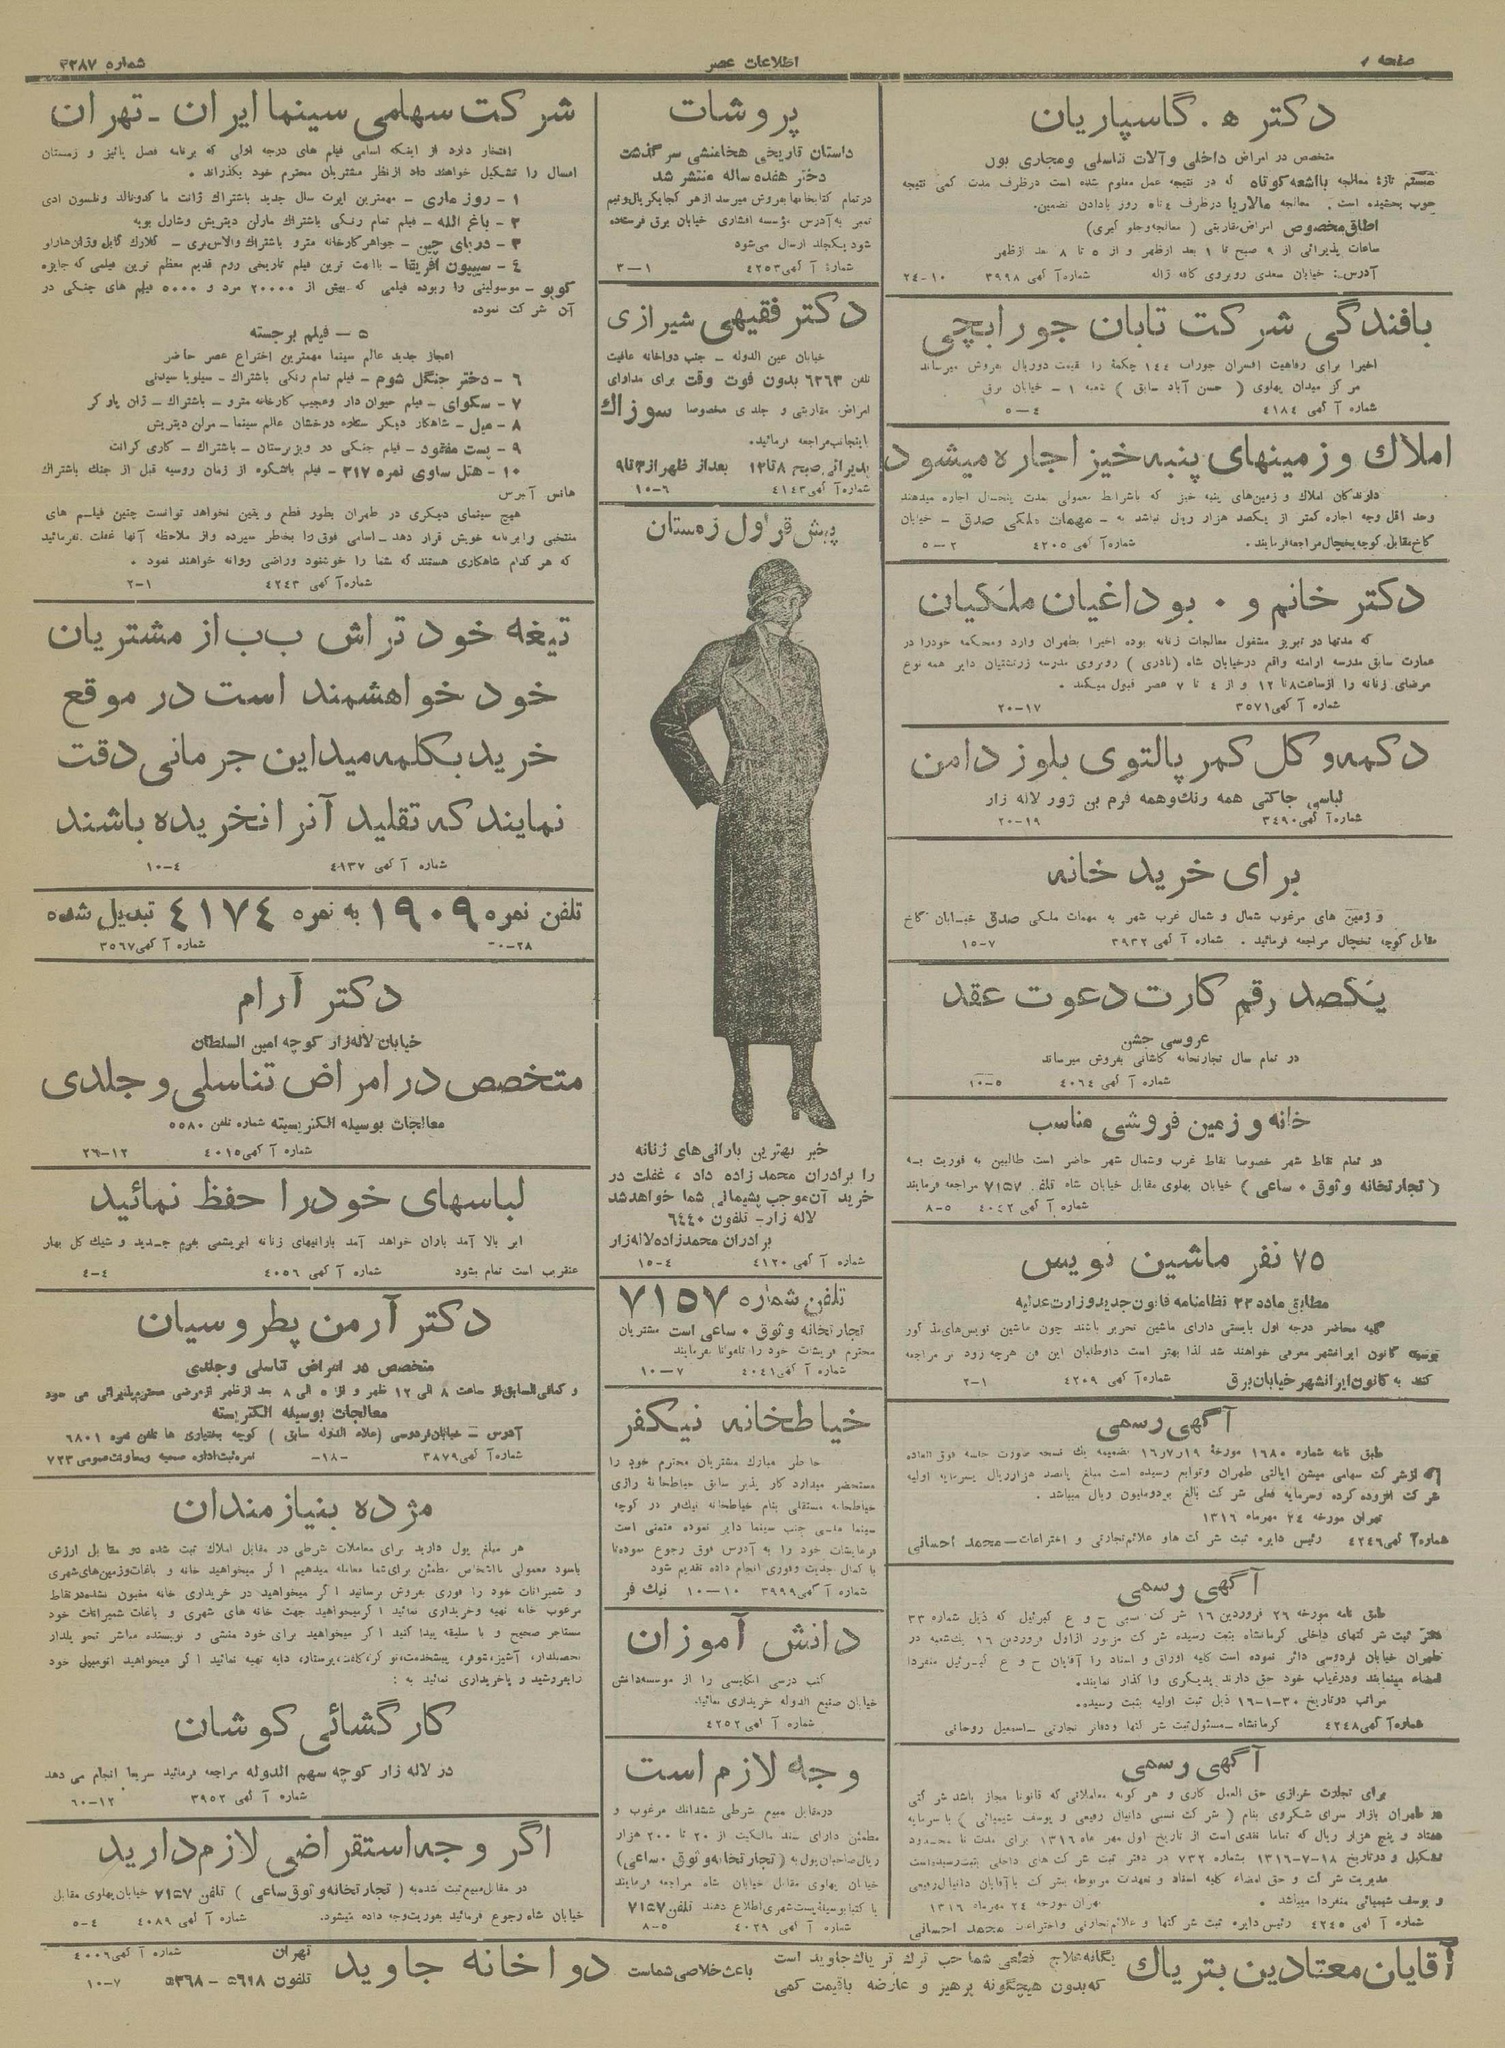 صفحه ۸
اطلاعات عصر
شماره ۳۲۸۷
دکتر ه . گاسپاریان
متخصص در امراض داخلی و آلات تناسلی و مجاری بول
سیستم تازۀ معالجه بااشعه کوتاه که در نتیجه عمل معلوم شده است درظرف مدت کمی نتیجه
خوب بخشیده است . معالجه مالاریا درظرف
روز بادادن تضمین.
اطاق مخصوص امراض مقاربتی ( معالجه وجلو گیری)
ساعات پذیرائی از ۹ صبح تا ۱ بعد ازظهر و از ۵ تا ۸ بعد ازظهر
آدرس: خیابان سعدی روبروی کافه ژاله شماره آ گهی ۳۹۹۸ ۱۰-۲٤
بافندگی شرکت تابان جورابچی
اخیرا برای رفاهیت افسران جوراب ۱٤٤ چکمۀ را قیمت دوریال بفروش میرساند
مرکز میدان پهلوی ( حسن آباد سابق ) شعبه ۱ - خیابان برق
شماره آ گهی ٤۱۸٤ ٤-۵
املاك و زمینهای پنبه خیز اجاره میشود
دارندکان املاك و زمین‌های پنبه خیز که باشرایط معمولی بمدت پنجسال اجاره میدهند
وحد اقل وجه اجاره کمتر از یکصد هزار ریال نباشد به - مهمات ملکی صدق - خیابان
کاخ مقابل کوچه یخچال مراجعه فرمایند. شماره آ گهی ٤۲۰۵ ۲-۵
دکتر خانم و ۰ بوداغیان ملکیان
که مدتها در تبریز مشغول معالجات زنانه بوده اخیرا بطهران وارد ومحکمه خودرا در
عمارت سابق مدرسه ارامنه واقع درخیابان شاه (نادری ) روبروی مدرسه زرتشتیان دایر همه نوع
مرضای زنانه را ازساعت ۸ تا ۱۲ و از ٤ تا ۷ عصر قبول میکند .
شماره آ گهی ۳۵۷۱ ۱۷-۲۰
دکمه و کل کمر پالتوی بلوز دامن
لباسی جاکتی همه رنك وهمه فرم بن ژور لاله زار
شماره آ گهی ۳٤۹۰ ۱۹-۲۰
برای خرید خانه
و زمین های مرغوب شمال و شمال غرب شهر به مهمات ملکی صدق خیابان کاخ
مقابل کوچه یخچال مراجعه فرمائید . شماره آ گهی ۳۹۳۲ ۷-۱۵
یکصد رقم کارت دعوت عقد
عروسی جشن
در تمام سال تجارتخانه کاشانی بفروش میرساند
شماره آ گهی ٤۰٦٤ ۵-۱۰
خانه و زمین فروشی مناسب
در تمام نقاط شهر خصوصا نقاط غرب وشمال شهر حاضر است طالبین به فوریت به
( تجارتخانه وثوق ۰ ساعی ) خیابان پهلوی مقابل خیابان شاه تلفن ۷۱۵۷ مراجعه فرمایند
شماره آ گهی ٤۰٤۲ ۵-۸
۷۵ نفر ماشین نویس
مطابق ماده ۲۲ نظامنامه قانون جدید وزارت عدلیه
کلیه محاضر درجه اول بایستی دارای ماشین تحریر باشند چون ماشین نویس‌های مذکور
بتوصیه کانون ایرانشهر معرفی خواهند شد لذا بهتر است داوطلبان این فن هرچه زود تر مراجعه
کنند به کانون ایرانشهر خیابان برق شماره آ گهی ٤۲۰۹ ۱-۲
آگهی رسمی
طبق نامه شماره ۱٦۸۰ مورخۀ ۱۹ر۷ر۱٦ بضمیمه یك نسخه صورت جلسه فوق العاده
که ازشرکت سهامی میشن ایالتی طهران وتوابع رسیده است مبلغ پانصد هزارریال بسرمایه اولیه
شرکت افزوده کرده وسرمایه فعلی شرکت بالغ بردومیلیون ریال میباشد .
تهران مورخه ۲٤ مهرماه ۱۳۱٦
شماره آ گهی ٤۲٤٦ رئیس دایره ثبت شرکت هاو علائم تجارتی و اختراعات - محمد احسانی
آگهی رسمی
طبق نامه مورخه ۲٦ فروردین ۱٦ شرکت نسبی ح و ع کبرئیل که ذیل شماره ۳۳
دفتر ثبت شرکتهای داخلی کرمانشاه بثبت رسیده شرکت مزبور ازاول فروردین ۱٦ یك شعبه در
طهران خیابان فردوسی دائر نموده است کلیه اوراق و اسناد را آقایان ح و ع کبرئیل منفردا
امضاء مینمایند ودرغیاب خود حق دارند بدیگری واگذار نمایند.
مراتب درتاریخ ۳۰-۱-۱٦ ذیل ثبت اولیه بثبت رسیده.
شماره آ گهی ٤۲٤۸ کرمانشاه - مسئول ثبت شرکتها ودفاتر تجارتی - اسمعیل روحانی
آگهی رسمی
برای تجارت خرازی حق العمل کاری و هر گونه معاملاتی که قانونا مجاز باشد شرکتی
در طهران بازار سرای شکروی بنام ( شرکت نسبی دانیال رفیعی و یوسف شیمیائی ) با سرمایه
هفتاد و پنج هزار ریال که تماما نقدی است از تاریخ اول مهر ماه ۱۳۱٦ برای مدت نا محدود
تشکیل و درتاریخ ۱۸-۷-۱۳۱٦ بشماره ۷۳۲ در دفتر ثبت شرکت های داخلی بثبت رسیده است
مدیریت شرکت و حق امضاء کلیه اسناد و تعهدات مربوطه بشرکت باآقایان دانیال رفیعی
و یوسف شیمیائی منفردا میباشد . تهران مورخه ۲٤ مهرماه ۱۳۱٦
شماره آ گهی ٤۲٤۵ رئیس دایره ثبت شرکتها و علائم تجارتی واختراعات محمد احسانی
پروشات
داستان تاریخی هخامنشی سرگذشت
دختر هفده ساله منتشر شد
درتمام کتابخانها بفروش میرسد ازهر کجا یکریال و نیم
تمبر به آدرس مؤسسه افشاری خیابان برق فرستاده
شود یکجلد ارسال می‌شود
شماره آ گهی ٤۲۵۳ ۱-۳
دکتر فقیهی شیرازی
خیابان عین الدوله - جنب دواخانه عافیت
تلفن ٦۲٦۳ بدون فوت وقت برای مداوای
امراض مقاربتی و جلدی مخصوصا سوزاك
اینجانب مراجعه فرمائید.
پذیرائی صبح ۸ تا ۱۲ بعد از ظهر از ۳ تا ۹
شماره آ گهی ٤۱٤۳ ٦-۱۰
پیش قراول زمستان
خبر بهترین بارانی‌های زنانه
را برادران محمد زاده داد ، غفلت در
خرید آن موجب پشیمانی شما خواهد شد
لاله زار - تلفون ٦٤٤۰
برادران محمدزاده لاله زار
شماره آ گهی ٤۱۲۰ ٤-۱۵
تلفن شماره ۷۱۵۷
تجارتخانه وثوق ۰ ساعی است مشتریان
محترم فرمایشات خود را تلفونا بفرمایند
شماره آ گهی ٤۰٤۱ ۷-۱۰
خیاطخانه نیکفر
خاطر مبارك مشتریان محترم خود را
مستحضر میدارد کار پذیر سابق خیاطخانۀ رازی
خیاطخانه مستقلی بنام خیاطخانه نیك‌فر در کوچه
سینما ملی جنب سینما دایر نموده متمنی است
فرمایشات خود را به آدرس فوق رجوع نموده تا
با کمال جدیت وفوری انجام داده تقدیم شود
شماره آ گهی ۳۹۹۹ ۱۰-۱۰ نیك فر
دانش آموزان
کتب درسی انگلیسی را از موسسه دانش
خیابان صنیع الدوله خریداری نمائید.
شماره آ گهی ٤۲۵۲
وجه لازم است
درمقابل مبیع شرطی ششدانك مرغوب و
مطمئن دارای سند مالکیت از ۲۰ تا ۲۰۰ هزار
ریال صاحبان پول به (تجارتخانه وثوق ۰ ساعی)
خیابان پهلوی مقابل خیابان شاه مراجعه فرمایند
یا کتبا بوسیلۀ پست شهری اطلاع دهند تلفن ۷۱۵۷
شماره آ گهی ٤۰۳۹ ۵-۸
شرکت سهامی سینما ایران - تهران
افتخار دارد از اینکه اسامی فیلم های درجه اولی که برنامه فصل پائیز و زمستان
امسال را تشکیل خواهند داد ازنظر مشتریان محترم خود بگذراند .
۱ - روز ماری - مهمترین اپرت سال جدید باشتراك ژانت ماکدونالد ونلسون ادی
۲ - باغ الله - فیلم تمام رنگی باشتراك مارلن دیتریش وشارل بویه
۳ - دریای چین - جواهر کارخانه مترو باشتراك والاس بری - کلارك گابل وژان هارلو
٤ - سیپیون افریقا - باابهت ترین فیلم تاریخی روم قدیم معظم ترین فیلمی که جایزه
کوپو - موسولینی را ربوده فیلمی که بیش از ۲۰۰۰۰ مرد و ۵۰۰۰ فیلم های جنگی در
آن شرکت نموده
۵ - فیلم برجسته
اعجاز جدید عالم سینما مهمترین اختراع عصر حاضر
٦ - دختر جنگل شوم - فیلم تمام رنگی باشتراك - سیلویا سیدنی
۷ - سکوای - فیلم حیوان دار وعجیب کارخانه مترو - باشتراك - ژان پارکر
۸ - میل - شاهکار دیگر ستاره درخشان عالم سینما - مرلن دیتریش
۹ - پست مفقود - فیلم جنگی در ویزیرستان - باشتراك - کاری گرانت
۱۰ - هتل ساوی نمره ۲۱۷ - فیلم باشکوه از زمان روسیه قبل از جنك باشتراك
هانس آلبرس
هیچ سینمای دیگری در طهران بطور قطع و یقین نخواهد توانست چنین فیلم های
منتخبی را برنامه خویش قرار دهد - اسامی فوق را بخاطر سپرده واز ملاحظه آنها غفلت نفرمائید
که هر کدام شاهکاری هستند که شما را خوشنود وراضی روانه خواهند نمود .
شماره آ گهی ٤۲٤۳ ۱-۲
تیغه خود تراش ب‌ب از مشتریان
خود خواهشمند است در موقع
خرید بکلمه میداین جرمانی دقت
نمایند که تقلید آنرا نخریده باشند
شماره آ گهی ٤۱۳۷ ٤-۱۰
تلفن نمره ۱۹۰۹ به نمره ٤۱۷٤ تبدیل شده
شماره آ گهی ۳۵٦۷
دکتر آرام
خیابان لاله‌زار کوچه امین السلطان
متخصص در امراض تناسلی و جلدی
معالجات بوسیله الکتریسیته شماره تلفن ۵۵۸۰
شماره آ گهی ٤۰۱۵ ۱۲-۲٦
لباسهای خودرا حفظ نمائید
ابر بالا آمد باران خواهد آمد بارانیهای زنانه ابریشمی بفرم جدید و شیك کل بهار
عنقریب است تمام بشود شماره آ گهی ٤۰۵٦ ٤-٤
دکتر آرمن پطروسیان
متخصص در امراض تناسلی و جلدی
و کمافی السابق از ساعت ۸ الی ۱۲ ظهر و از ۵ الی ۸ بعد ازظهر ازمرضی محترم پذیرائی می شود
معالجات بوسیله الکتریسته
آدرس - خیابان فردوسی (علاء الدوله سابق ) کوچه بختیاری ها تلفن نمره ٦۸۰۱
شماره آ گهی ۳۸۷۹ -۱۸- نمره ثبت اداره صحیه ومعاونت عمومی ۷۲۳
مژده بنیازمندان
هر مبلغ پول دارید برای معاملات شرطی در مقابل املاك ثبت شده در مقابل ارزش
باسود معمولی بااشخاص مطمئن برای شما معامله میدهیم اگر میخواهید خانه و باغات وزمین‌های شهری
و شمیرانات خود را فوری بفروش برسانید اگر میخواهید در خریداری خانه مغبون نشده در نقاط
مرغوب خانه تهیه وخریداری نمائید اگرمیخواهید جهت خانه های شهری و باغات شمیرانات خود
مستاجر صحیح و با سلیقه پیدا کنید اگر میخواهید برای خود منشی و نویسنده مباشر تحویلدار
تحصیلدار، آشپز، شوفر، پیشخدمت، نوکر، کلفت، پرستار، دایه تهیه نمائید اگر میخواهید اتومبیل خود
رابفروشید و یاخریداری نمائید به :
کارگشائی کوشان
در لاله زار کوچه سهم الدوله مراجعه فرمائید سریعا انجام می دهد
شماره آ گهی ۳۹۵۲ ۱۲-٦۰
اگر وجه استقراضی لازم دارید
در مقابل مبیع ثبت شده به ( تجارتخانه وثوق ساعی ) تلفن ۷۱۵۷ خیابان پهلوی مقابل
خیابان شاه رجوع فرمائید بفوریت وجه داده میشود. شماره آ گهی ٤۰۸۹ ٤-۵
آقایان معتادین بتریاك
یگانه علاج قطعی شما حب ترك تریاك جاوید است
که بدون هیچگونه پرهیز و عارضه باقیمت کمی
باعث خلاصی شماست
دواخانه جاوید
تهران شماره آ گهی ٤۰۰٦
تلفون ۵٦۱۸ - ۵۳٦۸ ۷-۱۰